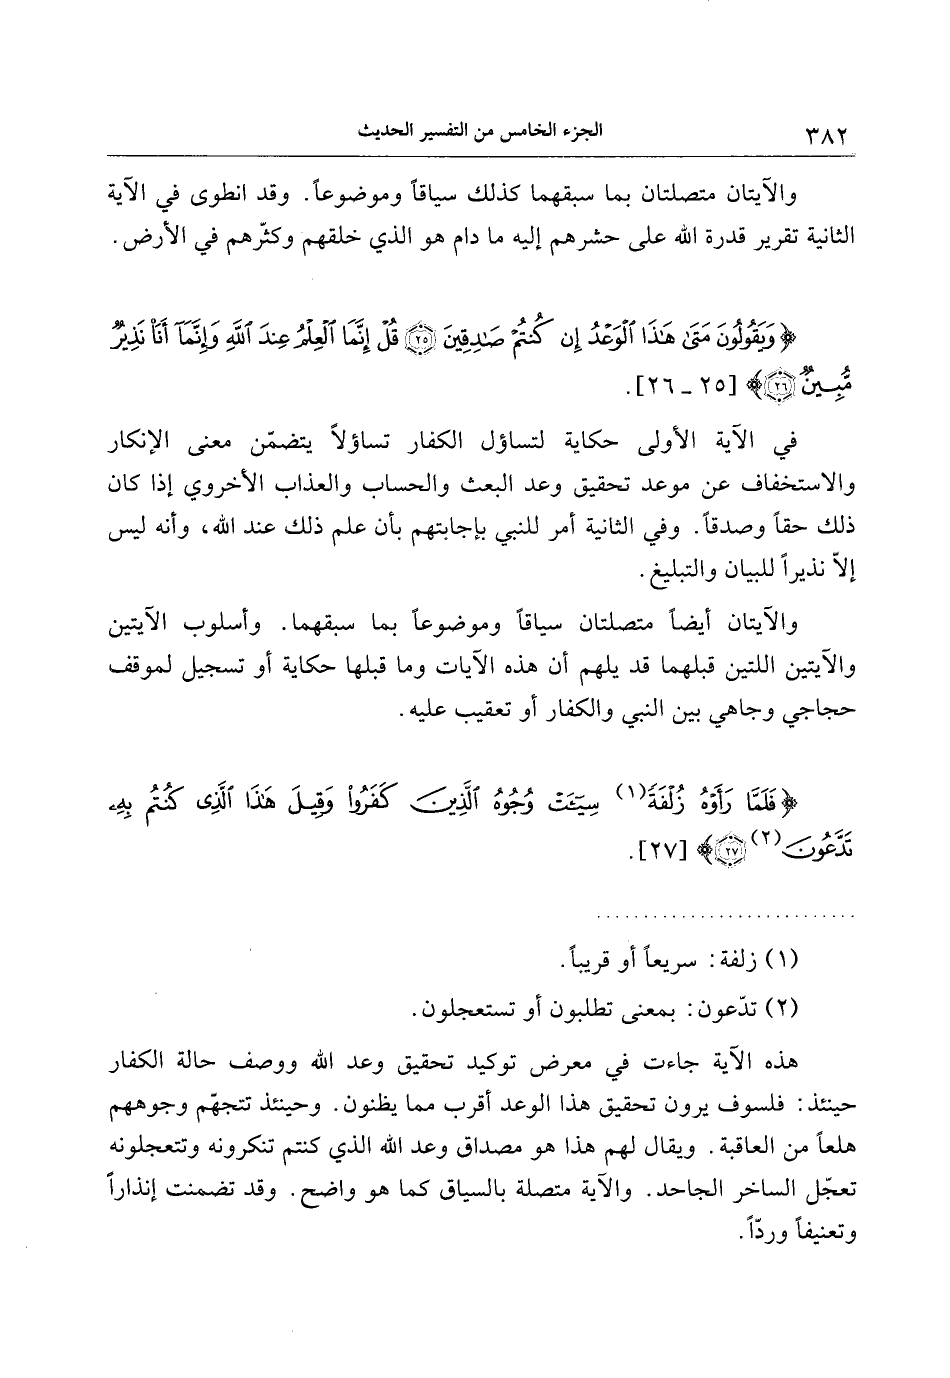 ٣٨٢ الجزء الخامس من التفسير الحديث
والآيتان متصلتان بما سبقهما كذلك سياقاً وموضوعاً. وقد انطوى في الآية
الثانية تقرير قدرة الله على حشرهم إليه ما دام هو الذي خلقهم وكثّرهم في الأرض.
﴿ وَيَقُولُونَ مَتَىٰ هَٰذَا ٱلْوَعْدُ إِن كُنتُمْ صَٰدِقِينَ ٢٥ قُلْ إِنَّمَا ٱلْعِلْمُ عِندَ ٱللَّهِ وَإِنَّمَآ أَنَا۠ نَذِيرٌ
مُّبِينٌ ٢٦ ﴾ [٢٥ ـ ٢٦].
في الآية الأولى حكاية لتساؤل الكفار تساؤلاً يتضمّن معنى الإنكار
والاستخفاف عن موعد تحقيق وعد البعث والحساب والعذاب الأخروي إذا كان
ذلك حقاً وصدقاً. وفي الثانية أمر للنبي بإجابتهم بأن علم ذلك عند الله، وأنه ليس
إلاّ نذيراً للبيان والتبليغ.
والآيتان أيضاً متصلتان سياقاً وموضوعاً بما سبقهما. وأسلوب الآيتين
والآيتين اللتين قبلهما قد يلهم أن هذه الآيات وما قبلها حكاية أو تسجيل لموقف
حجاجي وجاهي بين النبي والكفار أو تعقيب عليه.
﴿ فَلَمَّا رَأَوْهُ زُلْفَةً (١) سِيٓـَٔتْ وُجُوهُ ٱلَّذِينَ كَفَرُوا۟ وَقِيلَ هَٰذَا ٱلَّذِى كُنتُم بِهِۦ
تَدَّعُونَ (٢) ٢٧ ﴾ [٢٧].
..........................
(١) زلفة: سريعاً أو قريباً.
(٢) تدّعون: بمعنى تطلبون أو تستعجلون.
هذه الآية جاءت في معرض توكيد تحقيق وعد الله ووصف حالة الكفار
حينئذ: فلسوف يرون تحقيق هذا الوعد أقرب مما يظنون. وحينئذ تتجهّم وجوههم
هلعاً من العاقبة. ويقال لهم هذا هو مصداق وعد الله الذي كنتم تنكرونه وتتعجلونه
تعجّل الساخر الجاحد. والآية متصلة بالسياق كما هو واضح. وقد تضمنت إنذاراً
وتعنيفاً وردّاً.